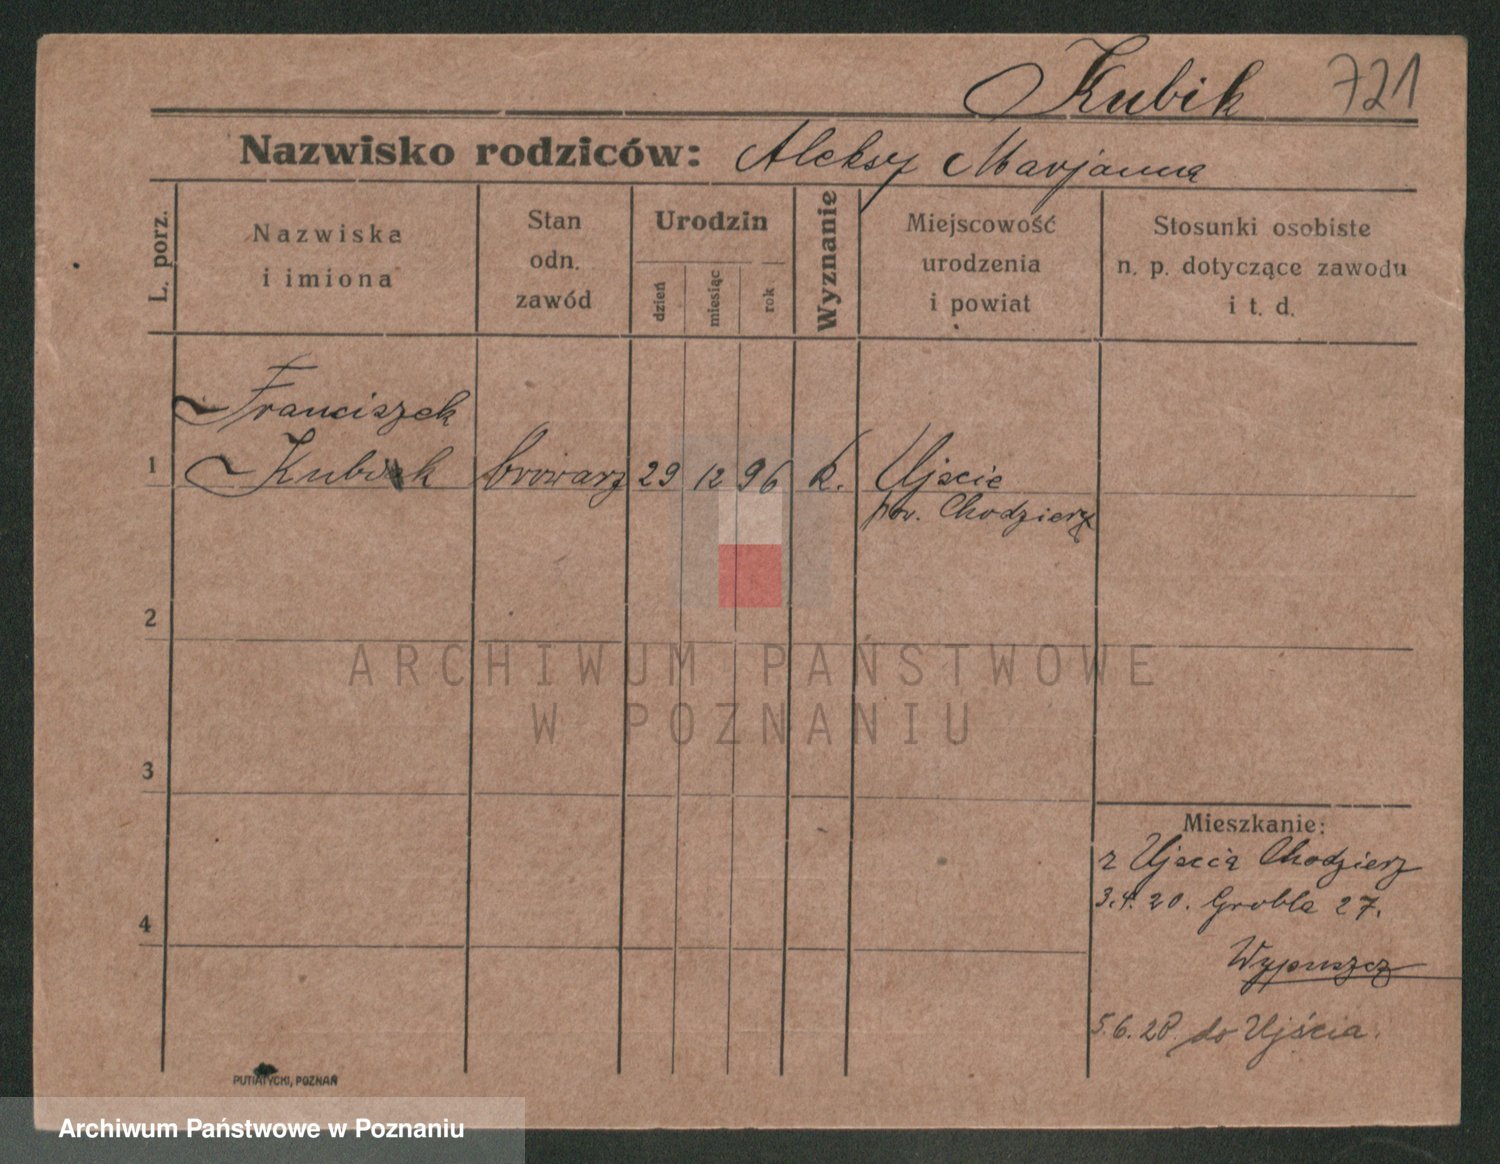 Kubik 721
Nazwisko rodziców: Aleksy Marjanna
L. porz.
Nazwiska
i imiona
Stan
odn.
zawód
Urodzin
dzień
miesiąc
rok
Wyznanie
Miejscowość
urodzenia
i powiat
Stosunki osobiste
n. p. dotyczące zawodu
i t. d.
Franciszek
1 Kubik browarz 29 12 96 k. Ujscie
pow. Chodzierz
2
ARCHIWUM PAŃSTWOWE
W POZNANIU
3
Mieszkanie:
z Ujscia Chodzierz
3.4.20. Grobla 27.
4
Wypuszcz
5.6.28. do Ujścia.
PUTIATYCKI, POZNAŃ
Archiwum Państwowe w Poznaniu